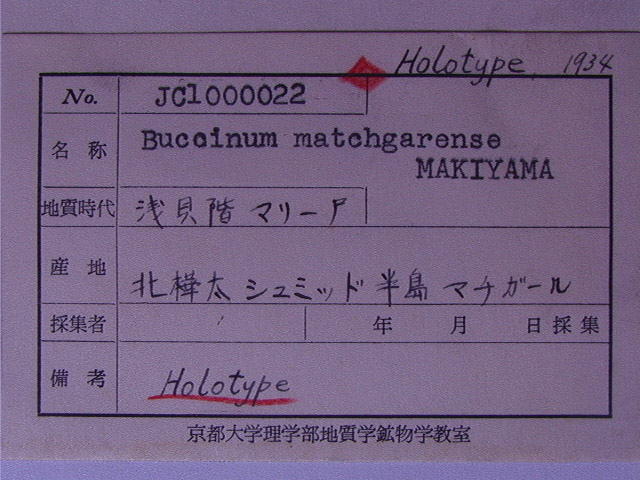 Holotype, 1934
No. JC1000022
名称 Buccinum matchgarense
MAKIYAMA
地質時代 浅貝階 マリーア
産地 北樺太 シュミッド半島 マチガール
採集者 年 月 日採集
備考 Holotype
京都大学理学部地質学鉱物学教室